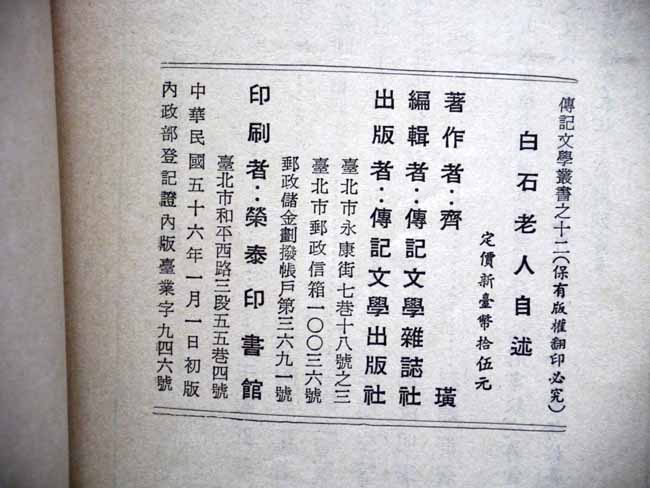 傳記文學叢書之十二(保有版權翻印必究)
白石老人自述
定價新臺幣拾伍元
著作者：齊璜
編輯者：傳記文學雜誌社
出版者：傳記文學出版社
臺北市永康街七巷十八號之三
臺北市郵政信箱一〇〇三六號
郵政儲金劃撥帳戶第三六九一號
印刷者：榮泰印書館
臺北市和平西路三段五五巷四號
中華民國五十六年一月一日初版
內政部登記證內版臺業字九四六號